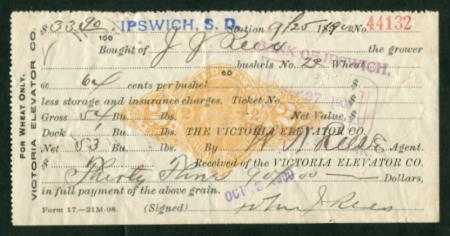 $33.90/100 IPSWICH, S. D. Station 9/25 1890 No. 44132
Bought of J J Rees the grower
BANK OF IPSWICH,
bushels No. 2 Wheat
60
64 cents per bushel
less storage and insurance charges. Ticket No.
Gross 54 Bu. lbs. Net Value, $
Dock Bu. lbs. THE VICTORIA ELEVATOR CO.
Net 53 Bu. lbs. By Agent.
$ Received of the VICTORIA ELEVATOR CO.
Thirty Three 90/100 Dollars,
OCT 2 1900
in full payment of the above grain.
Form 17.—21M-98. (Signed) John J Rees
FOR WHEAT ONLY.
VICTORIA ELEVATOR CO.